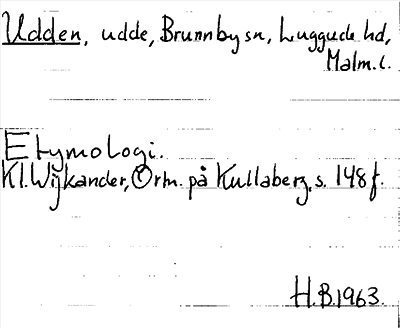 Udden, udde, Brunnby sn, Luggude hd,
Malm. l.
Etymologi.
Kl. Wijkander, Ortn. på Kullaberg, s. 148 f.
H.B. 1963.